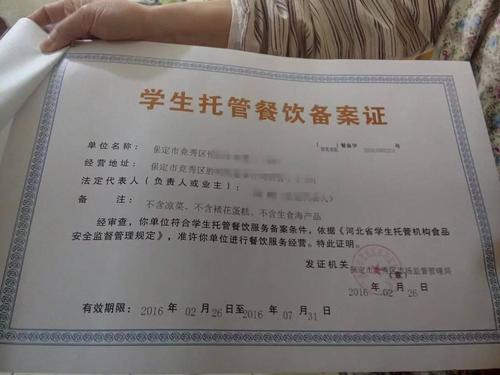 学生托管餐饮备案证
餐备字 号
单位名称：保定市竞秀区
经营地址：保定市竞秀区
法定代表人（负责人或业主）：
备 注：不含凉菜、不含裱花蛋糕、不含生食海产品
经审查，你单位符合学生托管餐饮服务备案条件，依据《河北省学生托管机构食品
安全监督管理规定》，准许你单位进行餐饮服务经营。特此证明。
发证机关 保定市竞秀区市场监督管理局
（章）
2016 年 02 月 26 日
有效期限：2016 年 02 月 26 日至 2016 年 07 月 31 日